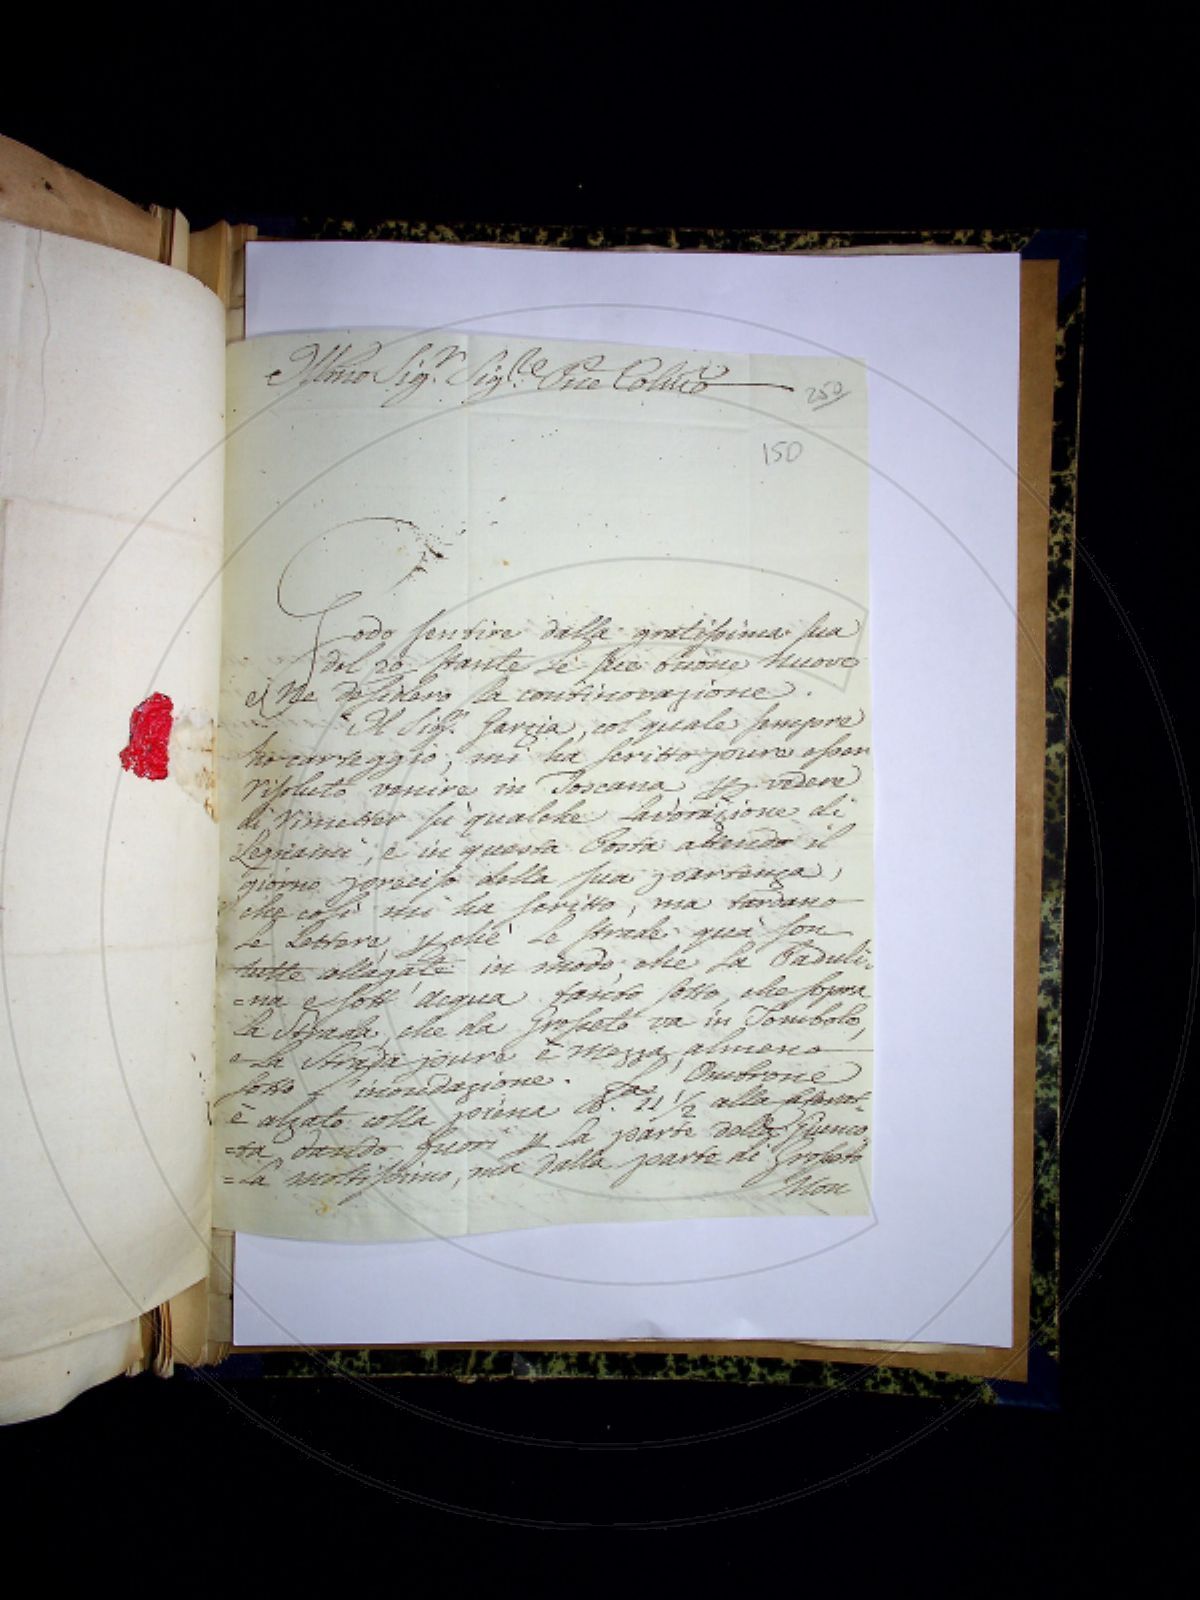 Illmo Sig.r Sig.re Pñe Colmo
250
150
Godo sentire dalla gratissima sua
del 20 stante le sue buone nuove
e Ne desidero la continovazione.
Il Sig.r Garzia, col quale sempre
ho carteggio, mi ha scritto pure esser
risoluto venire in Toscana p vedere
di rimetter sù qualche lavorazione di
Legnami, e in questa Posta attendo il
giorno preciso della sua partenza,
che così mi ha scritto, ma tardano
le Lettere, p chè le strade quà son
tutte allagate in modo, che la Paduli-
=na è sott' acqua tanto sotto, che sopra
la Strada, che da Grosseto va in Tombolo,
e la Strada pure è mezza almeno
sotto l' inondazione. Ombrone
è alzato colla piena 11 1/2 alla
=ta dando fuori p la parte della Giunco
=la moltissimo, ma dalla parte di Grosseto
Non